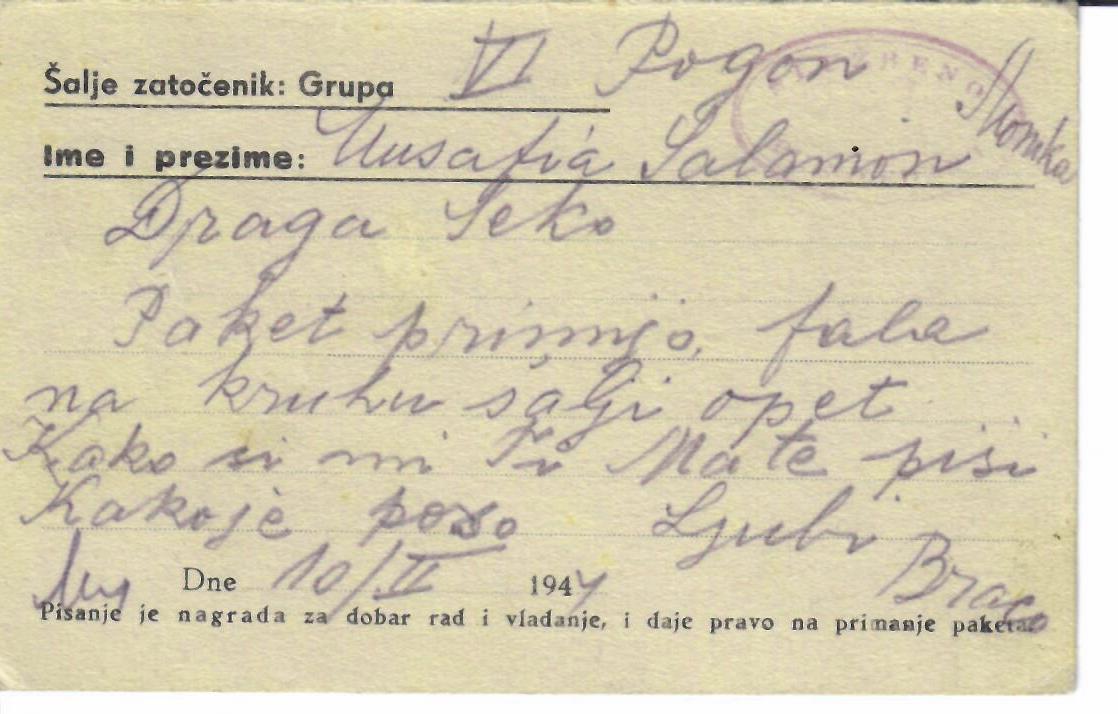 Šalje zatočenik: Grupa VI Pogon
Ime i prezime: Musafia Salamon
Draga Seko
Paket primijo, fala
na kruhu šalji opet
Kako si mi Ti Mate piši
Kakoje poso Ljubi
Dne 10/II 1944 Braco
Pisanje je nagrada za dobar rad i vladanje, i daje pravo na primanje paketa.